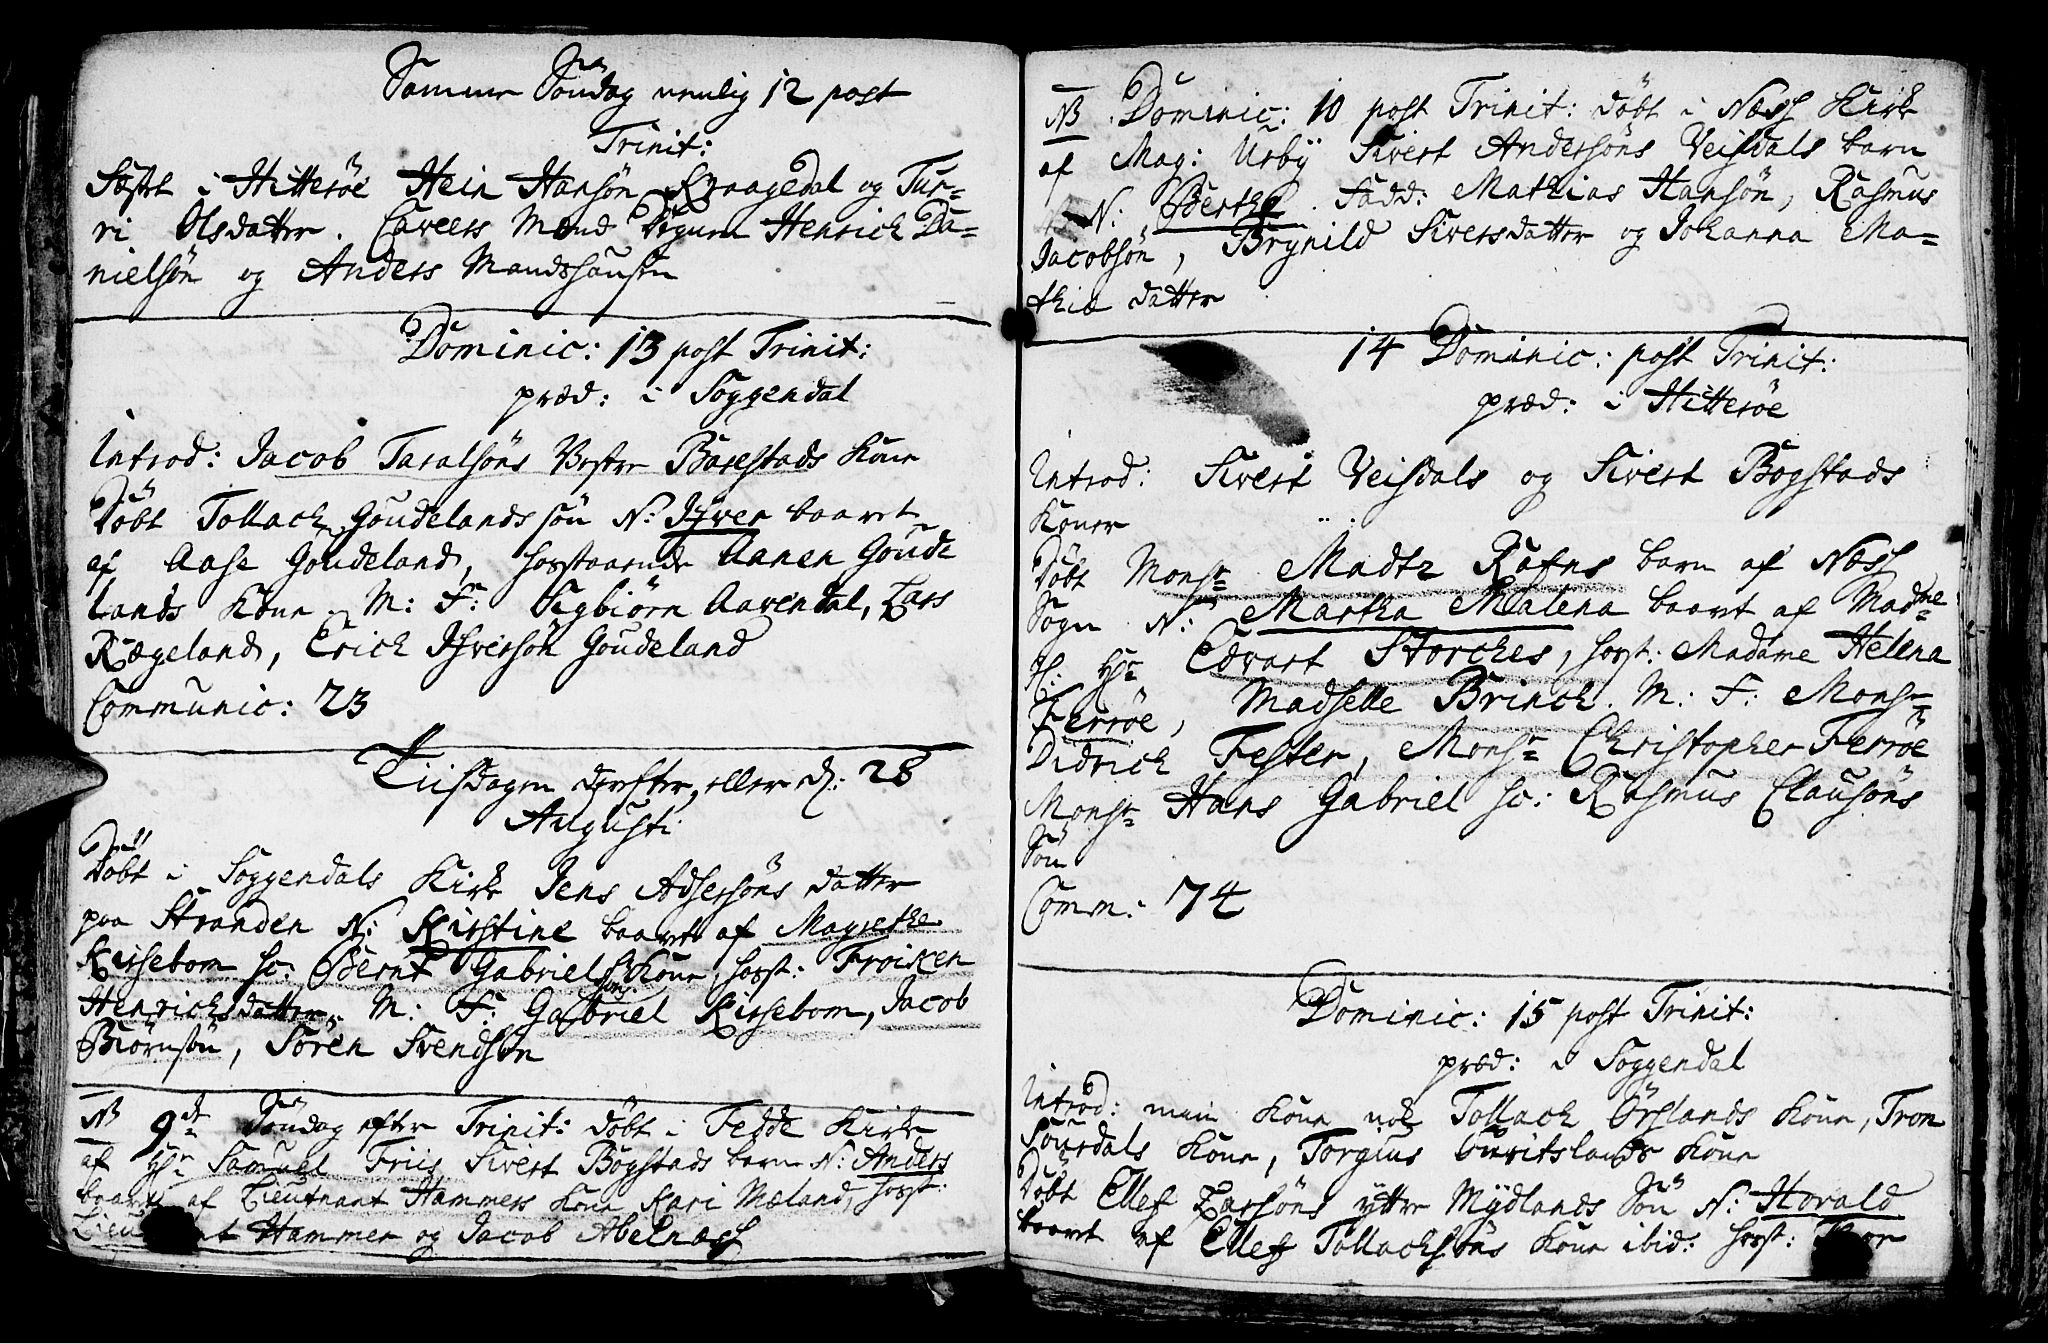 Samme Söndag nemlig 12 post
Trinit:
Fæstet i Hitteröe Hein Hansön Kraagedal og Tur-
ri Olsdatter. Caveers Mænd Ægum Henrich Da-
nielsön og Anders Mandshausen
Dominic: 13 post Trinit:
præd: i Soggendal
Introd: Jacob Taralsöns Vestre Barstads Kone
Döbt Tollach Goudelands sön N: Ifver baaret
af Aase Goudeland, hosstaaende Aanen Goude
lands Kone. M: F: Sigbiörn Aavendal, Lars
Rægeland, Erich Ifversön Goudeland
Communic: 23
Tiisdagen derefter, eller d: 28
Augusti
Döbt i Soggendals Kirke Jens Adsersöns datter
paa Stranden N: Kirstine baaret af Magrethe
Kirsebom sc: Bernt Gabrielsöns Kone, hosst: Froiken
Henrichsdatter. M: F: Gabriel Kirsebom, Jacob
Biörnsön, Sören Svendsön
NB 9de Söndag efter Trinit: döbt i Fedde Kirke
af Hr Samuel Friis Sivert Bogstads barn N: Anders
baaret af Lieutnant Hammers Kone Kari Mæland, hosst:
Hammer og Jacob Abelnæss
NB Dominic: 10 post Trinit: döbt i Næss Kirke
af Mag: Ursby Sivert Andersöns Veisdals barn
N: Berthe. Fadd: Mathias Hansön, Rasmus
Jacobsön, Brynild Siversdatter og Johanna Ma-
thiæ datter
14 Dominic: post Trinit:
præd: i Hitteröe
Introd: Sivert Veisdals og Sivert Bogstads
Koner
Döbt Monsr Madtz Rafns barn af Næss
Sogn N: Martha Malena baaret af Madme
Sl: Hr Edvart Storches, hosst: Madame Helena
Ferröe, Madselle Brinch. M: F: Monsr
Didrich Fester, Monsr Christopher Ferröe
Monsr Hans Gabriel sc: Rasmus Clausöns
Sön
Comm: 74
Dominic: 15 post Trinit:
præd: i Soggendal
Introd: min Kone nok Tollach Örslands Kone, Tron
Suurdals Kone, Torgius Guritslands Kone
Döbt Ellef Larsöns yttre Mydlands Sön N: Horald
baaret af Ellef Tollachsöns Kone ibid: hosst: